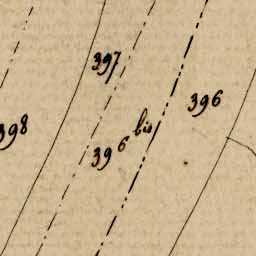 397
396
398
396 bis